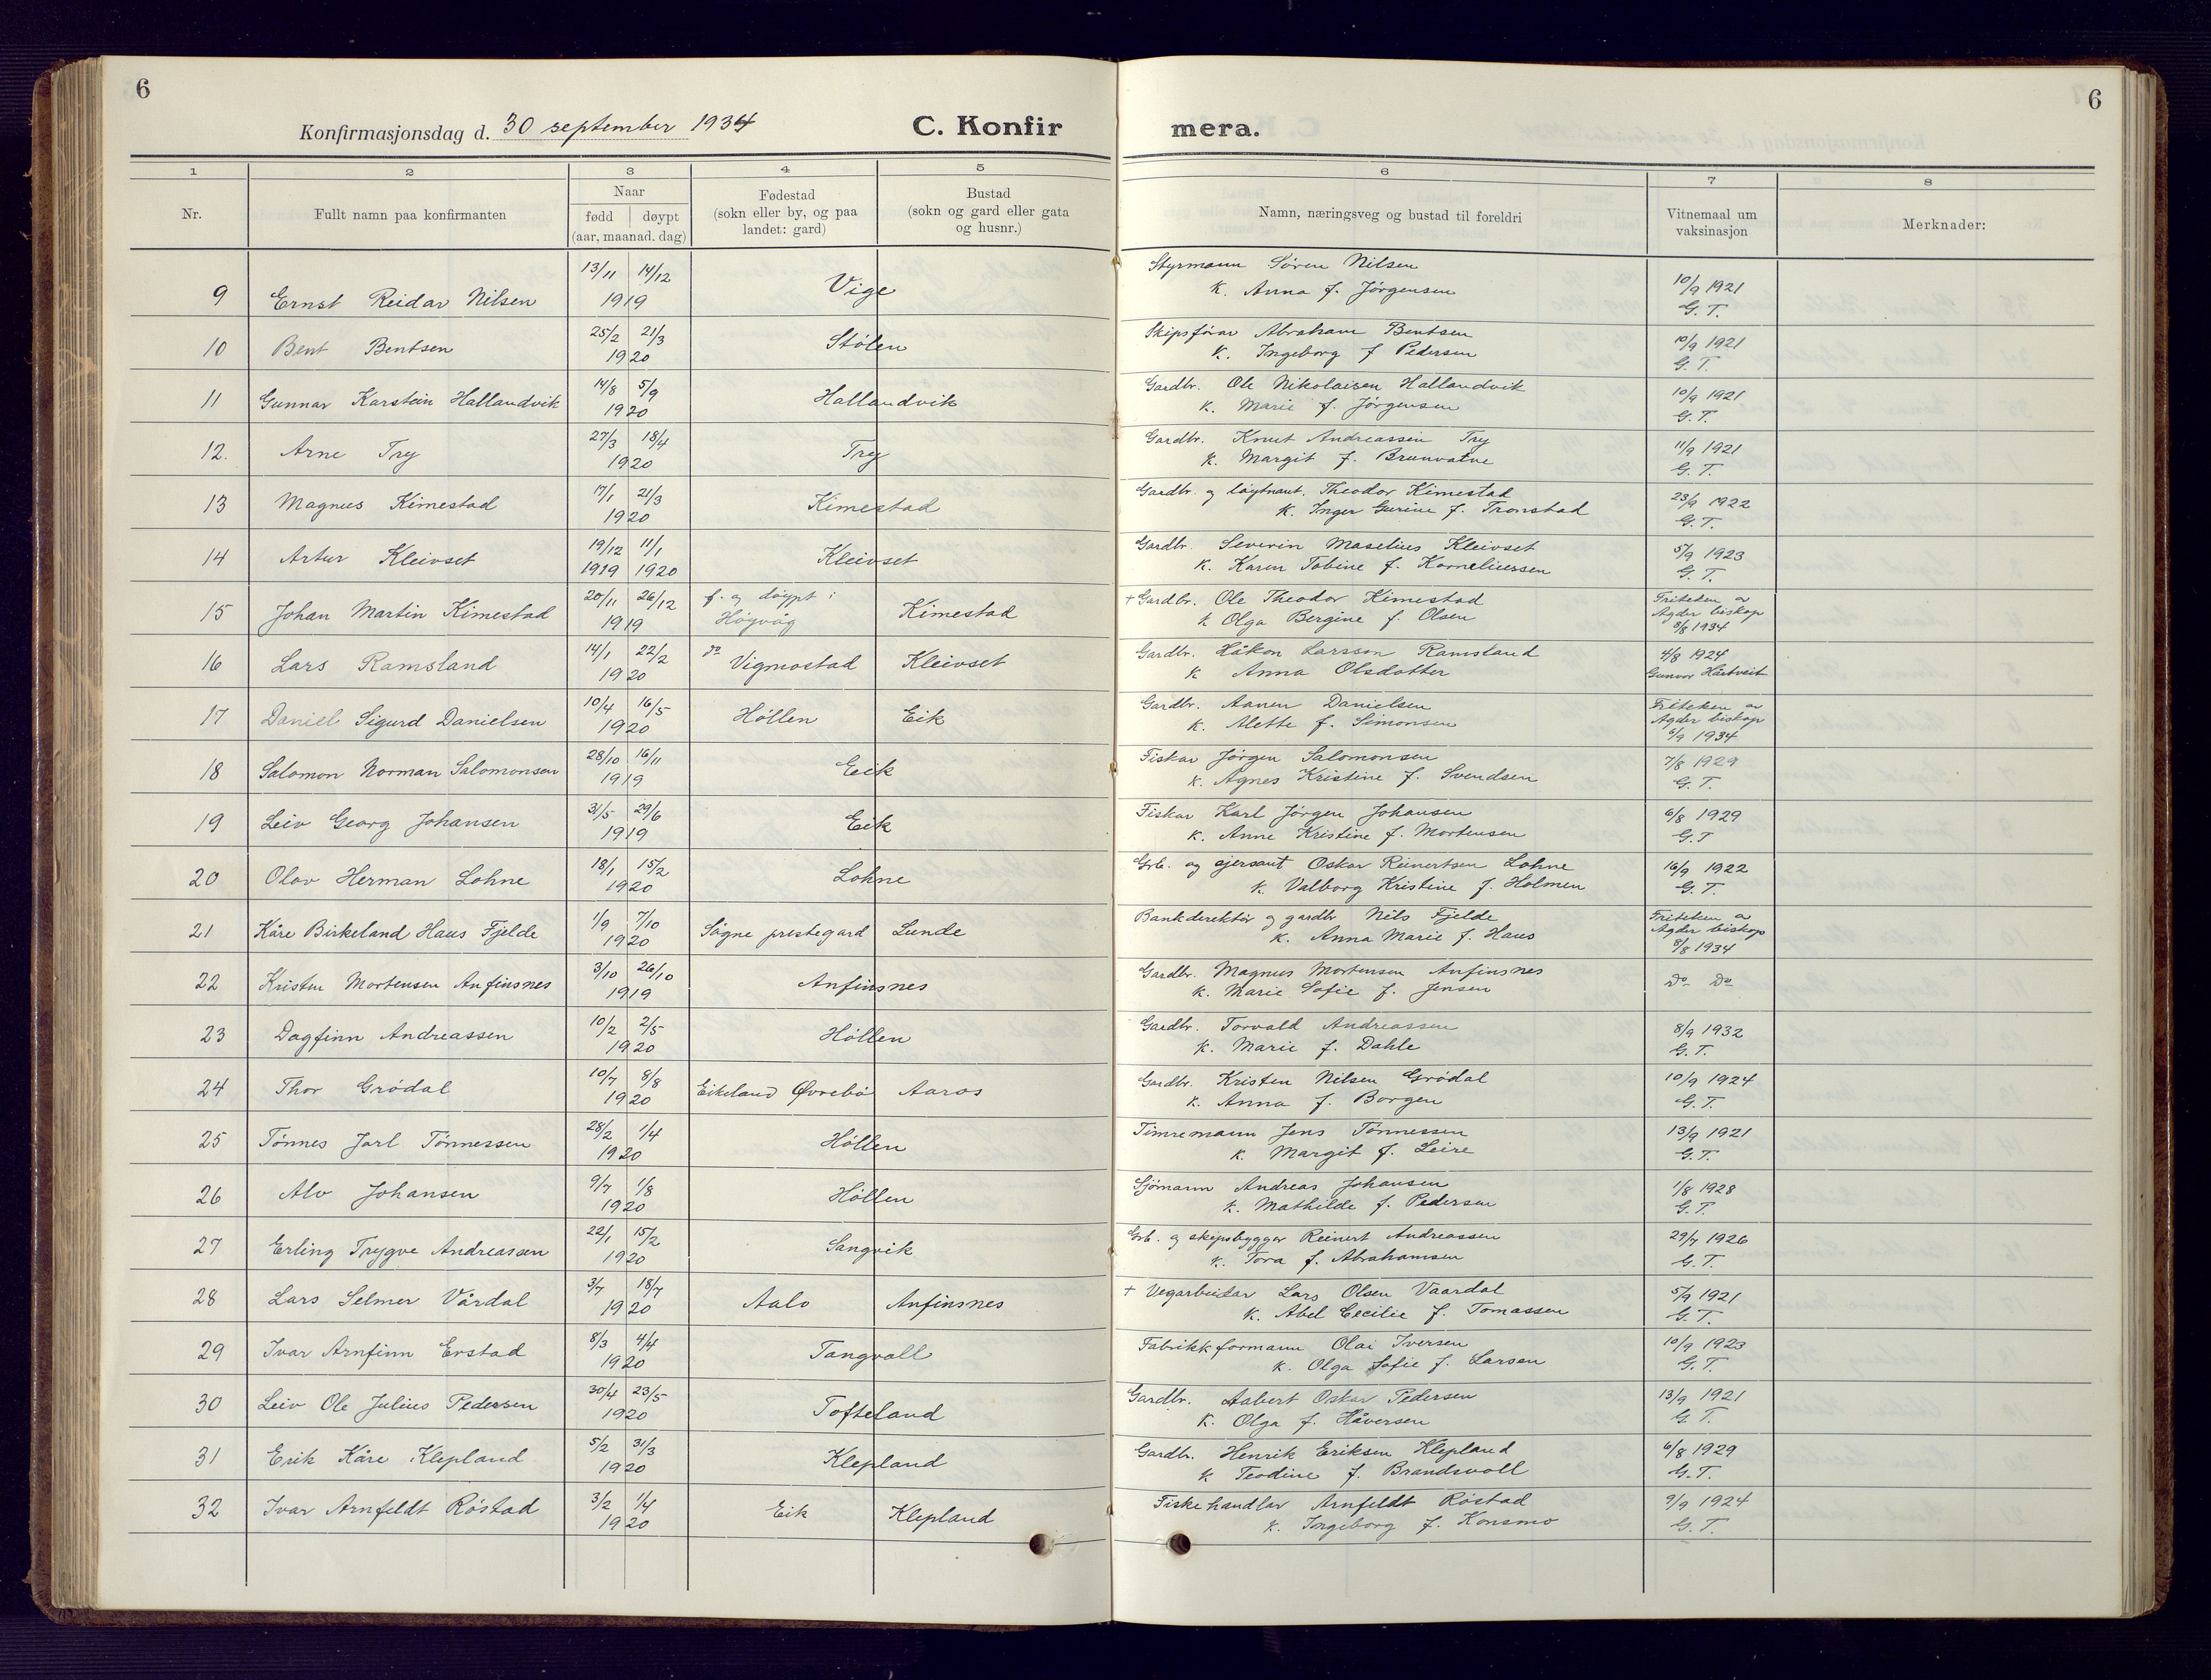 6
Konfirmasjonsdag d. 30 september 1934
C. Konfir
mera.
6
1 2 3 4 5 6 7 8
Nr.
Fullt namn paa konfirmanten
Naar
fødd døypt
(aar, maanad, dag)
Fødestad
(sokn eller by, og paa
landet: gard)
Bustad
(sokn og gard eller gata
og husnr.)
Namn, næringsveg og bustad til foreldri
Vitnemaal um
vaksinasjon
Merknader:
9 Ernst Reidar Nilsen 13/11 14/12 1919 Vige
Styrmann Søren Nilsen
K. Anna f. Jørgensen
10/9 1921
G. T.
10 Bent Bentsen 25/2 21/3 1920 Stølen
Skipsførar Abraham Bentsen
K. Ingeborg f Pedersen
10/9 1921
G. T.
11 Gunnar Karstein Hallandvik 14/8 5/9 1920 Hallandvik
Gardbr. Ole Nikolaisen Hallandvik
K. Marie f. Jørgensen
10/9 1921
G. T.
12. Arne Try 27/3 18/4 1920 Try
Gardbr. Knut Andreassen Try
K. Margit f. Brunvatne
11/9 1921
G. T.
13 Magnus Kimestad 17/1 21/3 1920 Kimestad
Gardbr. og løytnant. Theodor Kimestad
K. Inger Gurine f. Tronstad
23/9 1922
G. T.
14 Artur Kleivset 19/12 11/1 1919 1920 Kleivset
Gardbr. Severin Maselius Kleivset
K. Karen Tobine f. Korneliussen
5/9 1923
G. T.
15 Johan Martin Kimestad 20/11 26/12 1919 f. og døypt i Høyvåg Kimestad
+ Gardbr. Ole Theodor Kimestad
K Olga Bergine f. Olsen
Friteken av
Agder biskop
8/8 1934
16 Lars Ramsland 14/1 22/2 1920 do Vigmostad Kleivset
Gardbr. Håkon Larsson Ramsland
K Anna Olsdotter
4/8 1924
Gunvor Hårtveit
17 Daniel Sigurd Danielsen 10/4 16/5 1920 Høllen Eik
Gardbr. Aanen Danielsen
K. Mette f. Simonsen
Friteken av
Agder biskop
6/9 1934
18 Salomon Norman Salomonsen 28/10 16/11 1919 Eik
Fiskar Jørgen Salomonsen
K. Agnes Kristine f. Svendsen
7/8 1929
G. T.
19 Leiv Georg Johansen 31/5 29/6 1919 Eik
Fiskar Karl Jørgen Johansen
K. Anne Kristine f. Mortensen
6/8 1929
G. T
20 Olav Herman Lohne 18/1 15/2 1920 Lohne
Grb. og sjersant Oskar Reinertsen Lohne
K. Valborg Kristine f. Holmen
16/9 1922
G. T.
21 Kåre Birkeland Haus Fjelde 1/9 7/10 1920 Søgne prestegard Lunde
Bankdirektør og gardbr Nils Fjelde
K. Anna Marie f. Haus
Friteken av
Agder biskop
8/8 1934
22 Kristen Mortensen Anfinsnes 3/10 26/10 1919 Anfinsnes
Gardbr. Magnus Mortensen Anfinsnes
K. Marie Sofie f. Jensen
Do Do
23 Dagfinn Andreassen 10/2 2/5 1920 Høllen
Gardbr. Torvald Andreassen
K. Marie f. Dahle
8/9 1932
G. T.
24 Thor Grødal 10/7 8/8 1920 Eikeland Øvrebø Aaros
Gardbr. Kristen Nilsen Grødal
K. Anna f. Borgen
10/9 1924
G. T.
25 Tønnes Jarl Tønnessen 28/2 1/4 1920 Høllen
Timremann Jens Tønnessen
K. Margit f. Leire
13/9 1921
G. T.
26 Alv Johansen 9/7 1/8 1920 Høllen
Sjømann Andreas Johansen
K. Mathilde f. Pedersen
1/8 1928
G. T.
27 Erling Trygve Andreassen 22/1 15/2 1920 Langvik
Grb. og skipsbyggar Reinert Andreassen
K. Tora f. Abrahamsen
29/7 1926
G. T.
28 Lars Selmer Vårdal 3/7 18/7 1920 Aalo Anfinsnes
+ Vegarbeidar Lars Olsen Vaardal
K. Abel Cecilie f. Tomassen
5/9 1921
G. T.
29 Ivar Arnfinn Erstad 8/3 4/4 1920 Tangvall
Fabrikkformann Olai Iversen
K. Olga Sofie f. Larsen
10/9 1923
G. T.
30 Leiv Ole Julius Pedersen 30/4 23/5 1920 Tofteland
Gardbr. Aabert Oskar Pedersen
K. Olga f. Håversen
13/9 1921
G. T.
31 Erik Kåre Klepland 5/2 31/3 1920 Klepland
Gardbr. Henrik Eriksen Klepland
K Teodine f. Brandsvoll
6/8 1929
G. T.
32 Ivar Arnfeldt Røstad 3/2 1/4 1920 Eik Klepland
Fiskehandlar Arnfeldt Røstad
K. Ingeborg f. Konsmo
9/9 1924
G. T.